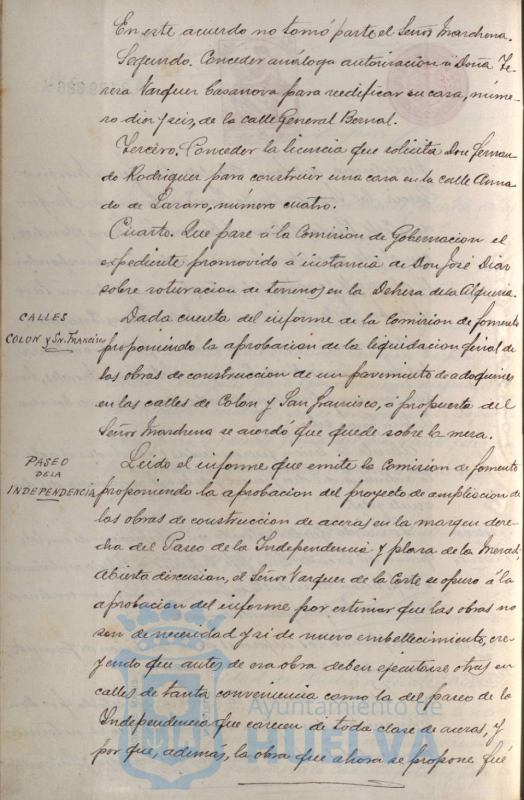 En este acuerdo no tomó parte el Señor Marchena.
Segundo. Conceder análoga autorización á Doña Te-
resa Vazquez Casanova para reedificar su casa, núme-
ro diez y seis, de la calle General Bernal.
Tercero. Conceder la licencia que solicita Don Fernan-
do Rodriguez para construir una casa en la calle Ama-
do de Lazaro, número cuatro.
Cuarto. Que pase á la Comision de Gobernacion el
expediente promovido á instancia de Don José Diaz
sobre roturacion de terrenos en la Dehesa de la Alquería.
CALLES
COLON Y SN. FRANCISCO
Dada cuenta del informe de la Comision de fomento
proponiendo la aprobacion de la liquidacion final de
las obras de construccion de un pavimento de adoquines
en las calles de Colon y San Francisco, á propuesta del
Señor Marchena se acordó que quede sobre la mesa.
PASEO
DE LA
INDEPENDENCIA
Leido el informe que emite la Comision de fomento
proponiendo la aprobacion del proyecto de ampliacion de
las obras de construccion de aceras en la margen dere-
cha del Paseo de la Independencia y plaza de la Merced,
Abierta discusion, el Señor Vazquez de la Corte se opuso á la
aprobacion del informe por estimar que las obras no
son de necesidad y si de nuevo embellecimiento, cre-
yendo que antes de esa obra deben ejecutarse otras en
calles de tanta conveniencia como la del paseo de la
Independencia que carecen de toda clase de aceras, y
por que, además, la obra que ahora se propone fué
Ayuntamiento de
HUELVA